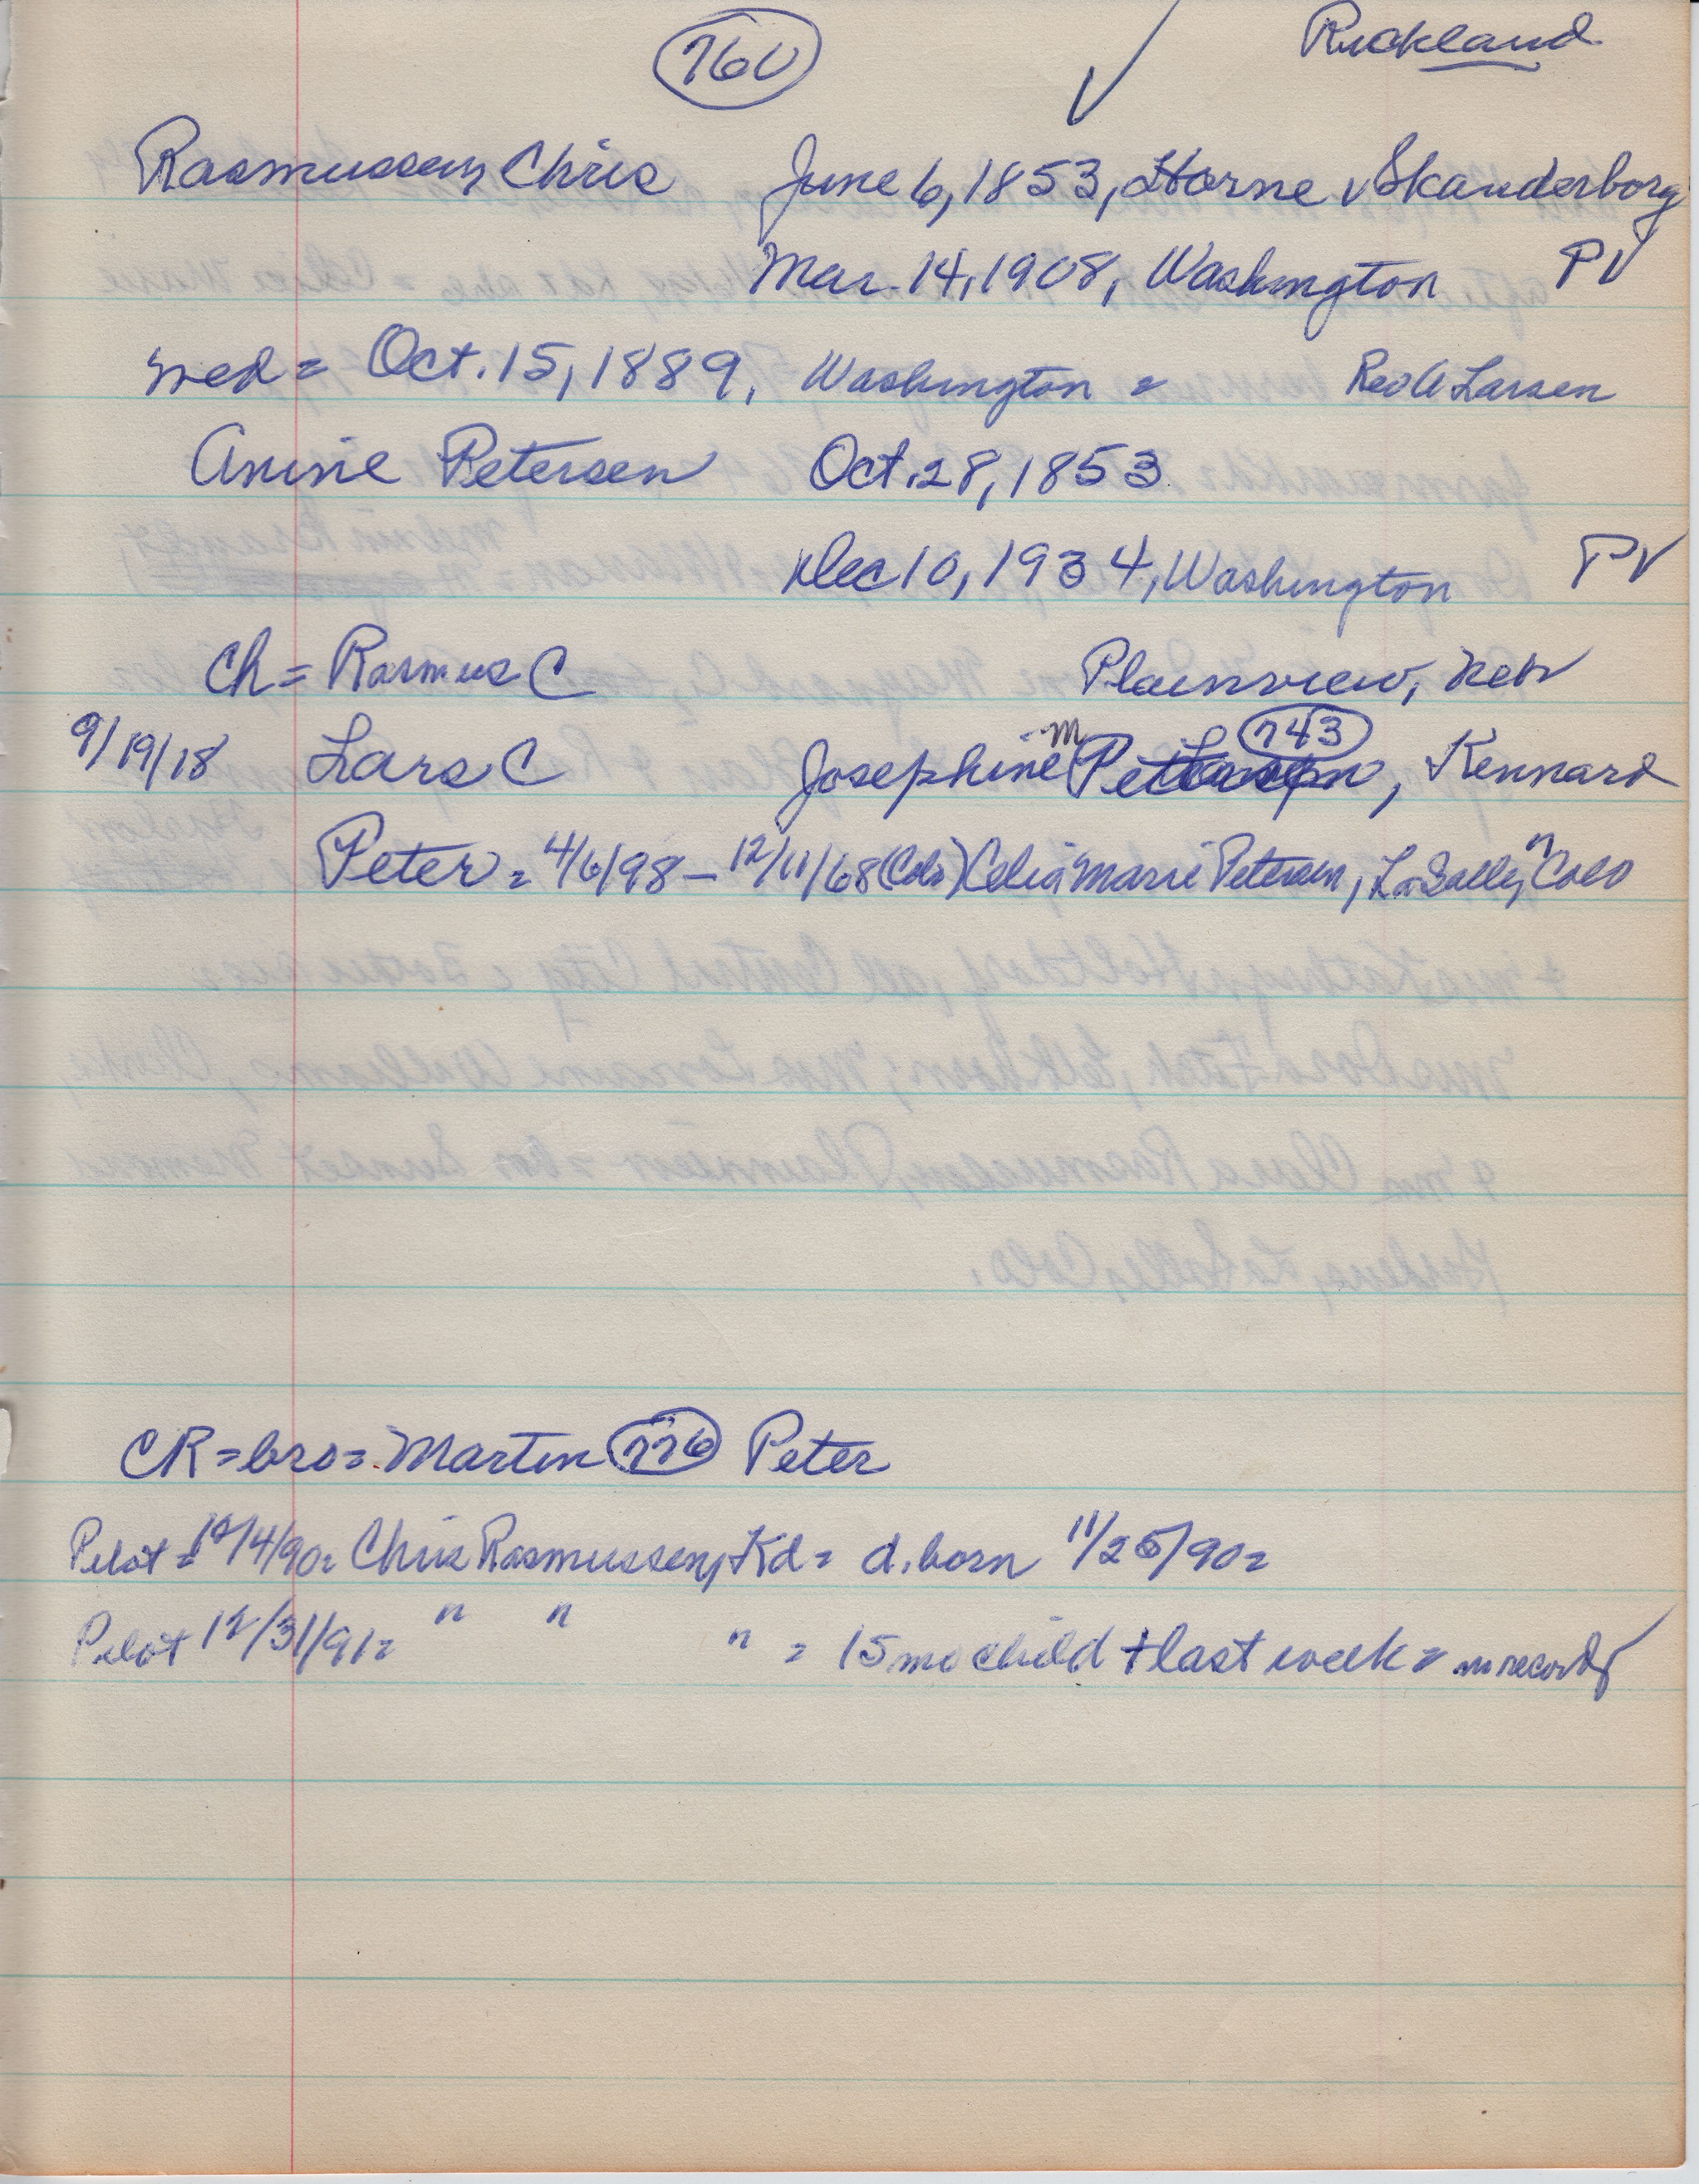 760 ✓ Richland
Rasmussen, Chris June 6, 1853, Horne v Skanderborg
Mar. 14, 1908, Washington PV
med = Oct. 15, 1889, Washington = Rev A Larsen
Annie Petersen Oct. 28, 1853
Dec 10, 1934, Washington PV
Ch = Rasmus C Plainview, Neb
9/19/18 Lars C Josephine M 743, Kennard
Peter = 4/6/98 – 12/11/68 (Colo) Celia Marie Petersen, La Salle, Colo
CR = bro = Martin 776 Peter
Pilot = 12/4/90 = Chris Rasmussen, Kd = d. born 11/26/90 =
Pilot 12/31/91 = " " " = 15 mo child + last week = no record